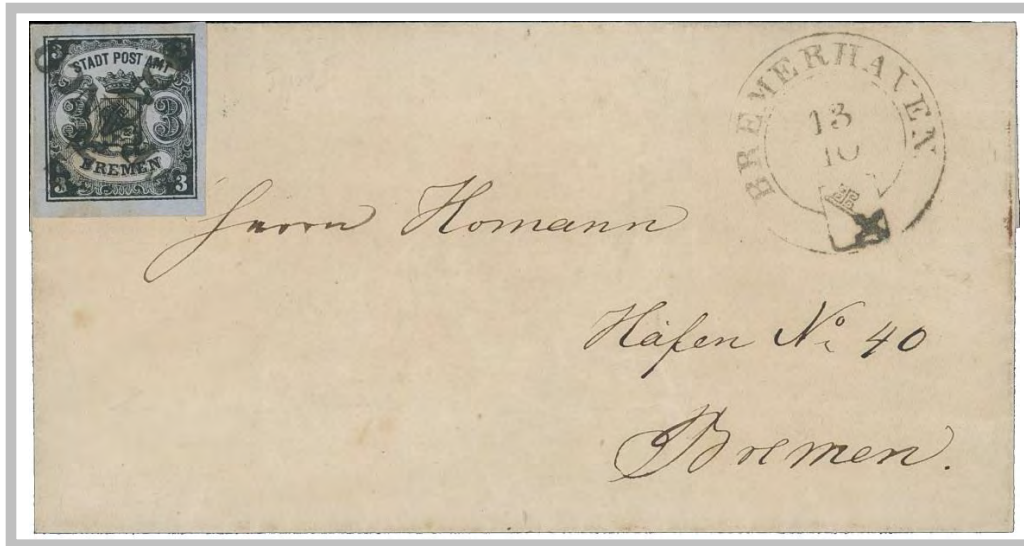 3 3
STADT POST AMT
3
BREMEN
3 3
BREMERHAVEN
13
10
Herrn Homann
Häfen No. 40
Bremen.